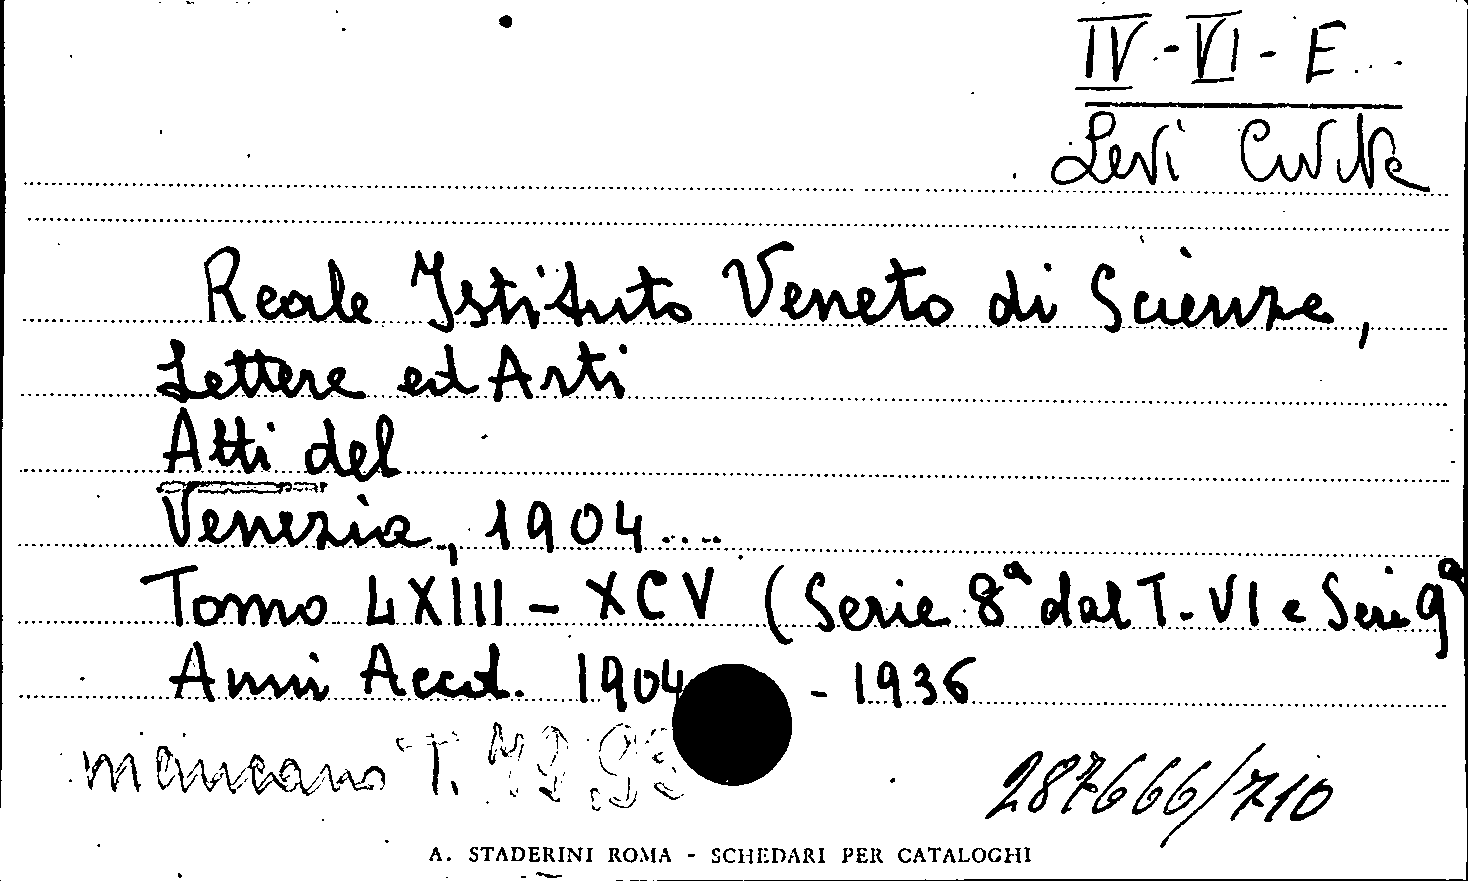 IV - VI - E...
Levi Civita
Reale Istituto Veneto di Scienze,
Lettere ed Arti
Atti del
Venezia, 1904....
Tomo LXIII - XCV (Serie 8ª dal T. VI e Serie 9ª
Anni Accad. 1904 - 1936
mancano T.
287666/710
A. STADERINI ROMA - SCHEDARI PER CATALOGHI